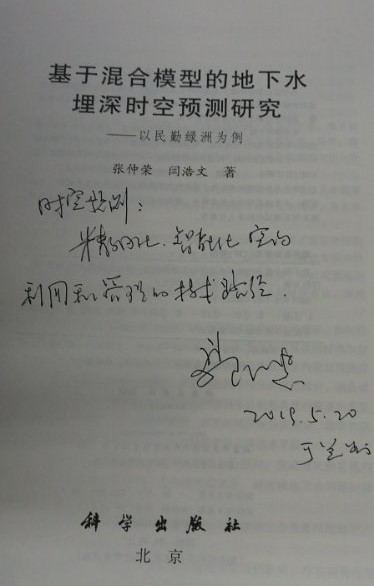 基于混合模型的地下水
埋深时空预测研究
——以民勤绿洲为例
张仲荣 闫浩文 著
时空预测：
精细化、智能化空间
利用和管理的技术途径.
2019.5.20
于兰州
科学出版社
北京